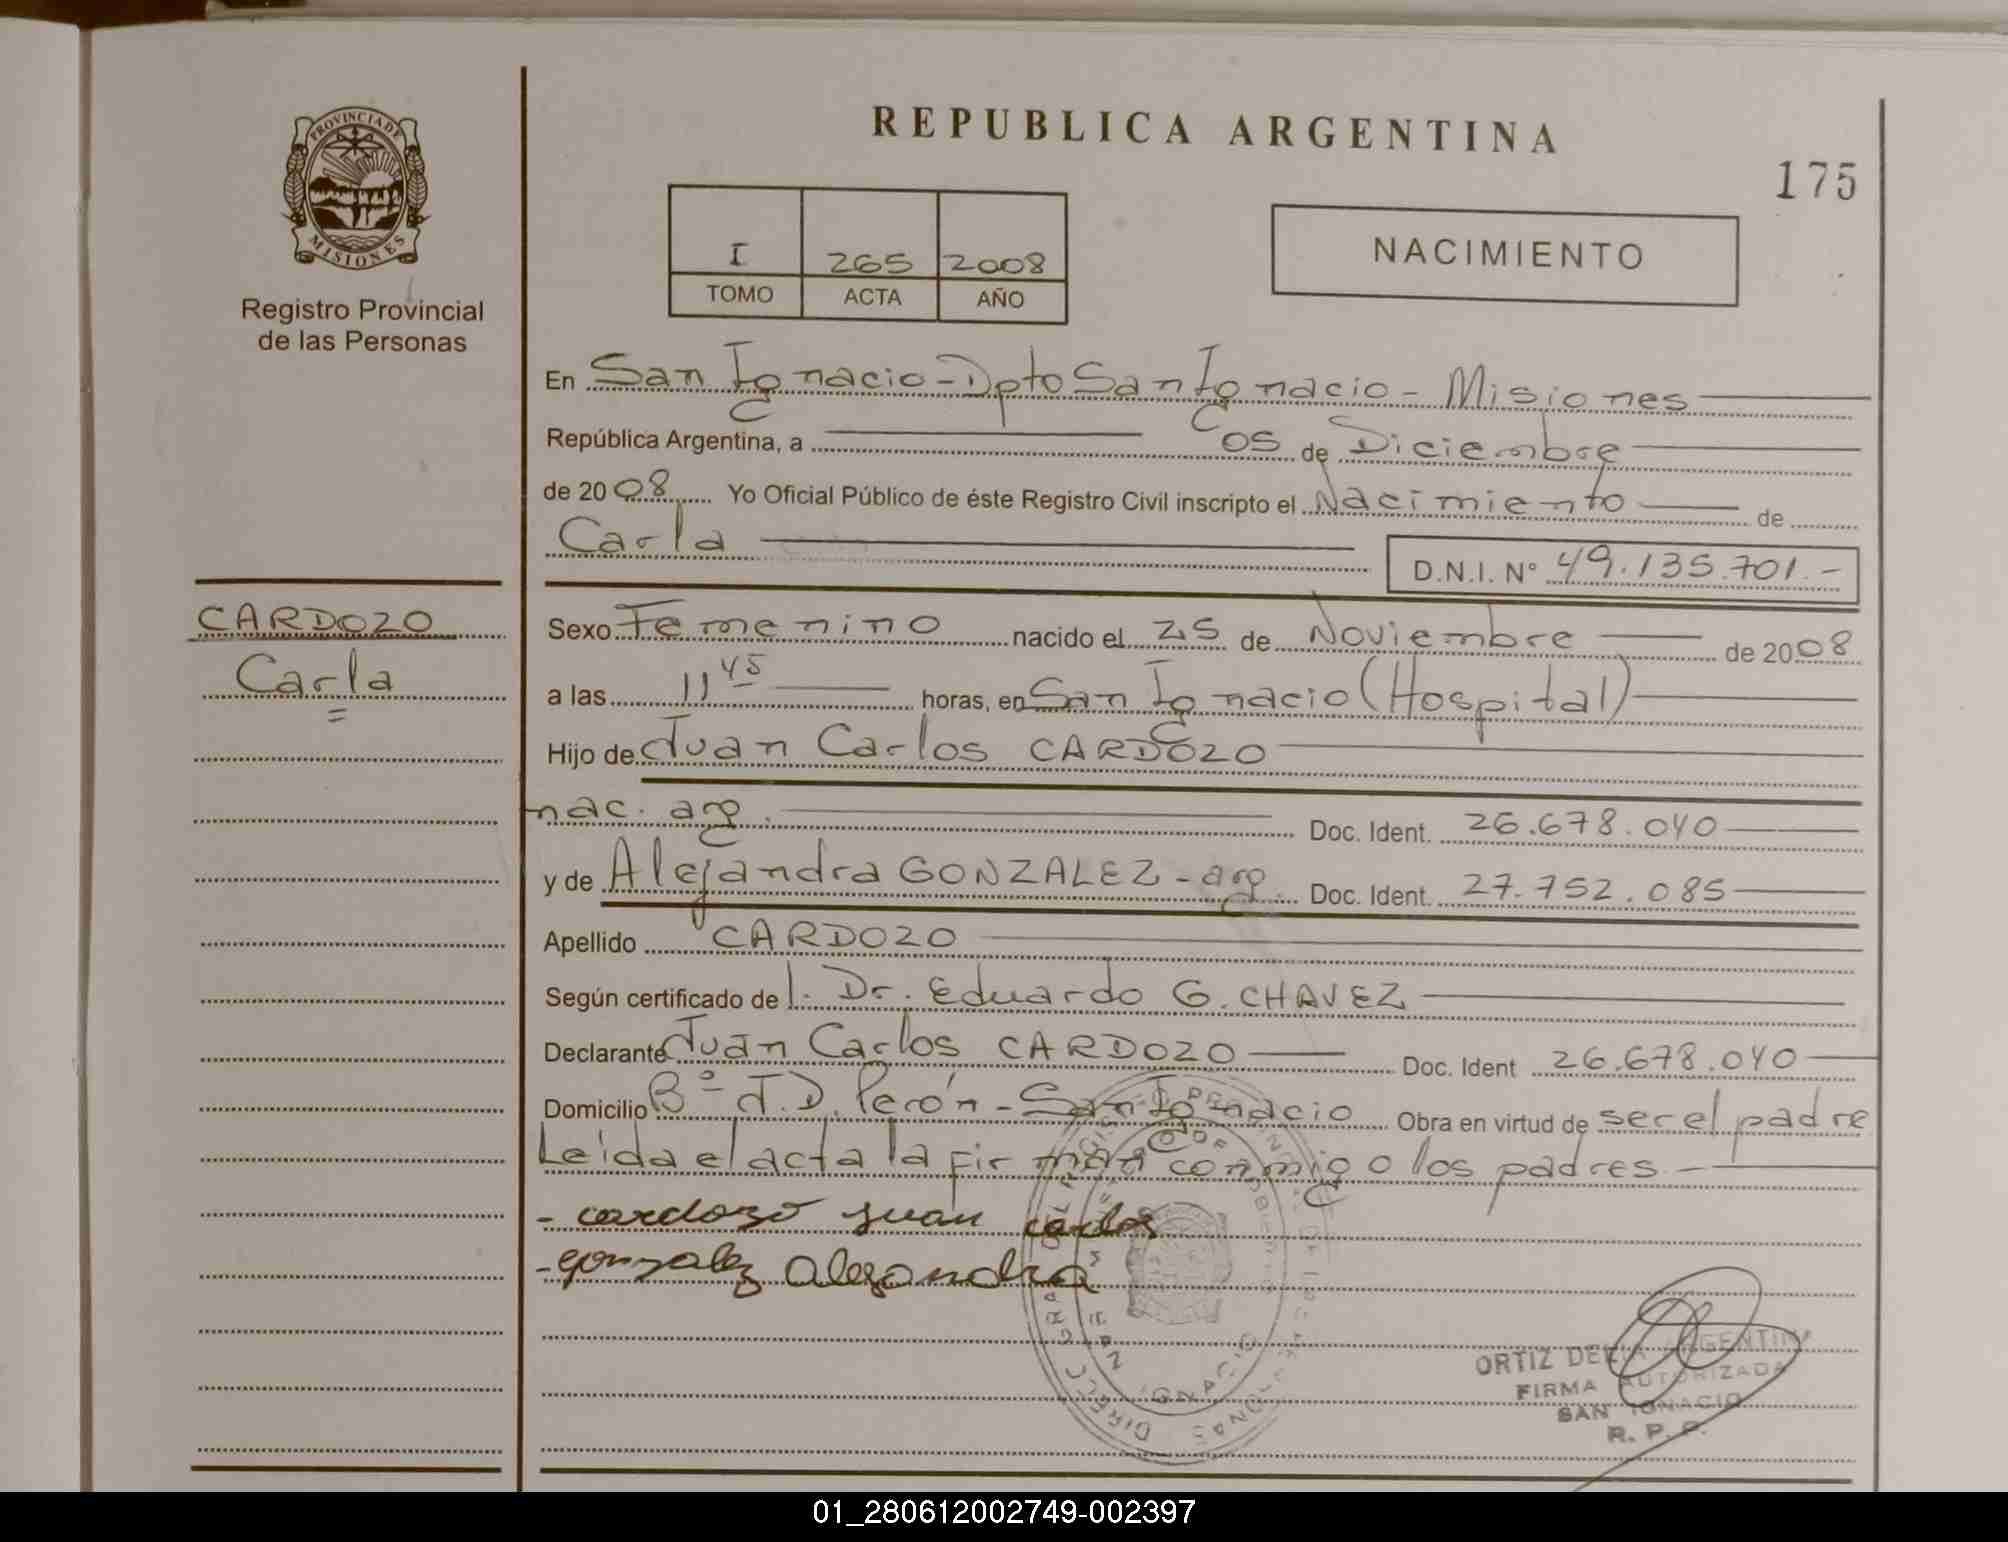 REPUBLICA ARGENTINA
175
PROVINCIA DE
MISIONES
Registro Provincial
de las Personas
I 265 2008
TOMO ACTA AÑO
NACIMIENTO
En San Ignacio - Dpto San Ignacio - Misiones
República Argentina, a 05 de Diciembre
de 2008 Yo Oficial Público de éste Registro Civil inscripto el Nacimiento de
Carla
D.N.I. N° 49.135.701.-
CARDOZO
Carla
Sexo Femenino nacido el 25 de Noviembre de 2008
a las 11 45 horas, en San Ignacio (Hospital)
Hijo de Juan Carlos CARDOZO
nac. arg. Doc. Ident. 26.678.040
y de Alejandra GONZALEZ - arg. Doc. Ident. 27.752.085
Apellido CARDOZO
Según certificado de l. Dr. Eduardo G. CHAVEZ
Declarante Juan Carlos CARDOZO Doc. Ident 26.678.040
Domicilio B° J.D. Perón - San Ignacio Obra en virtud de ser el padre
Leída el acta la firman conmigo los padres.-
- cardozo juan carlos
- gonzalez alejandra
ORTIZ DELIA ARGENTINA
FIRMA AUTORIZADA
SAN IGNACIO
R. P. P.
01_280612002749-002397